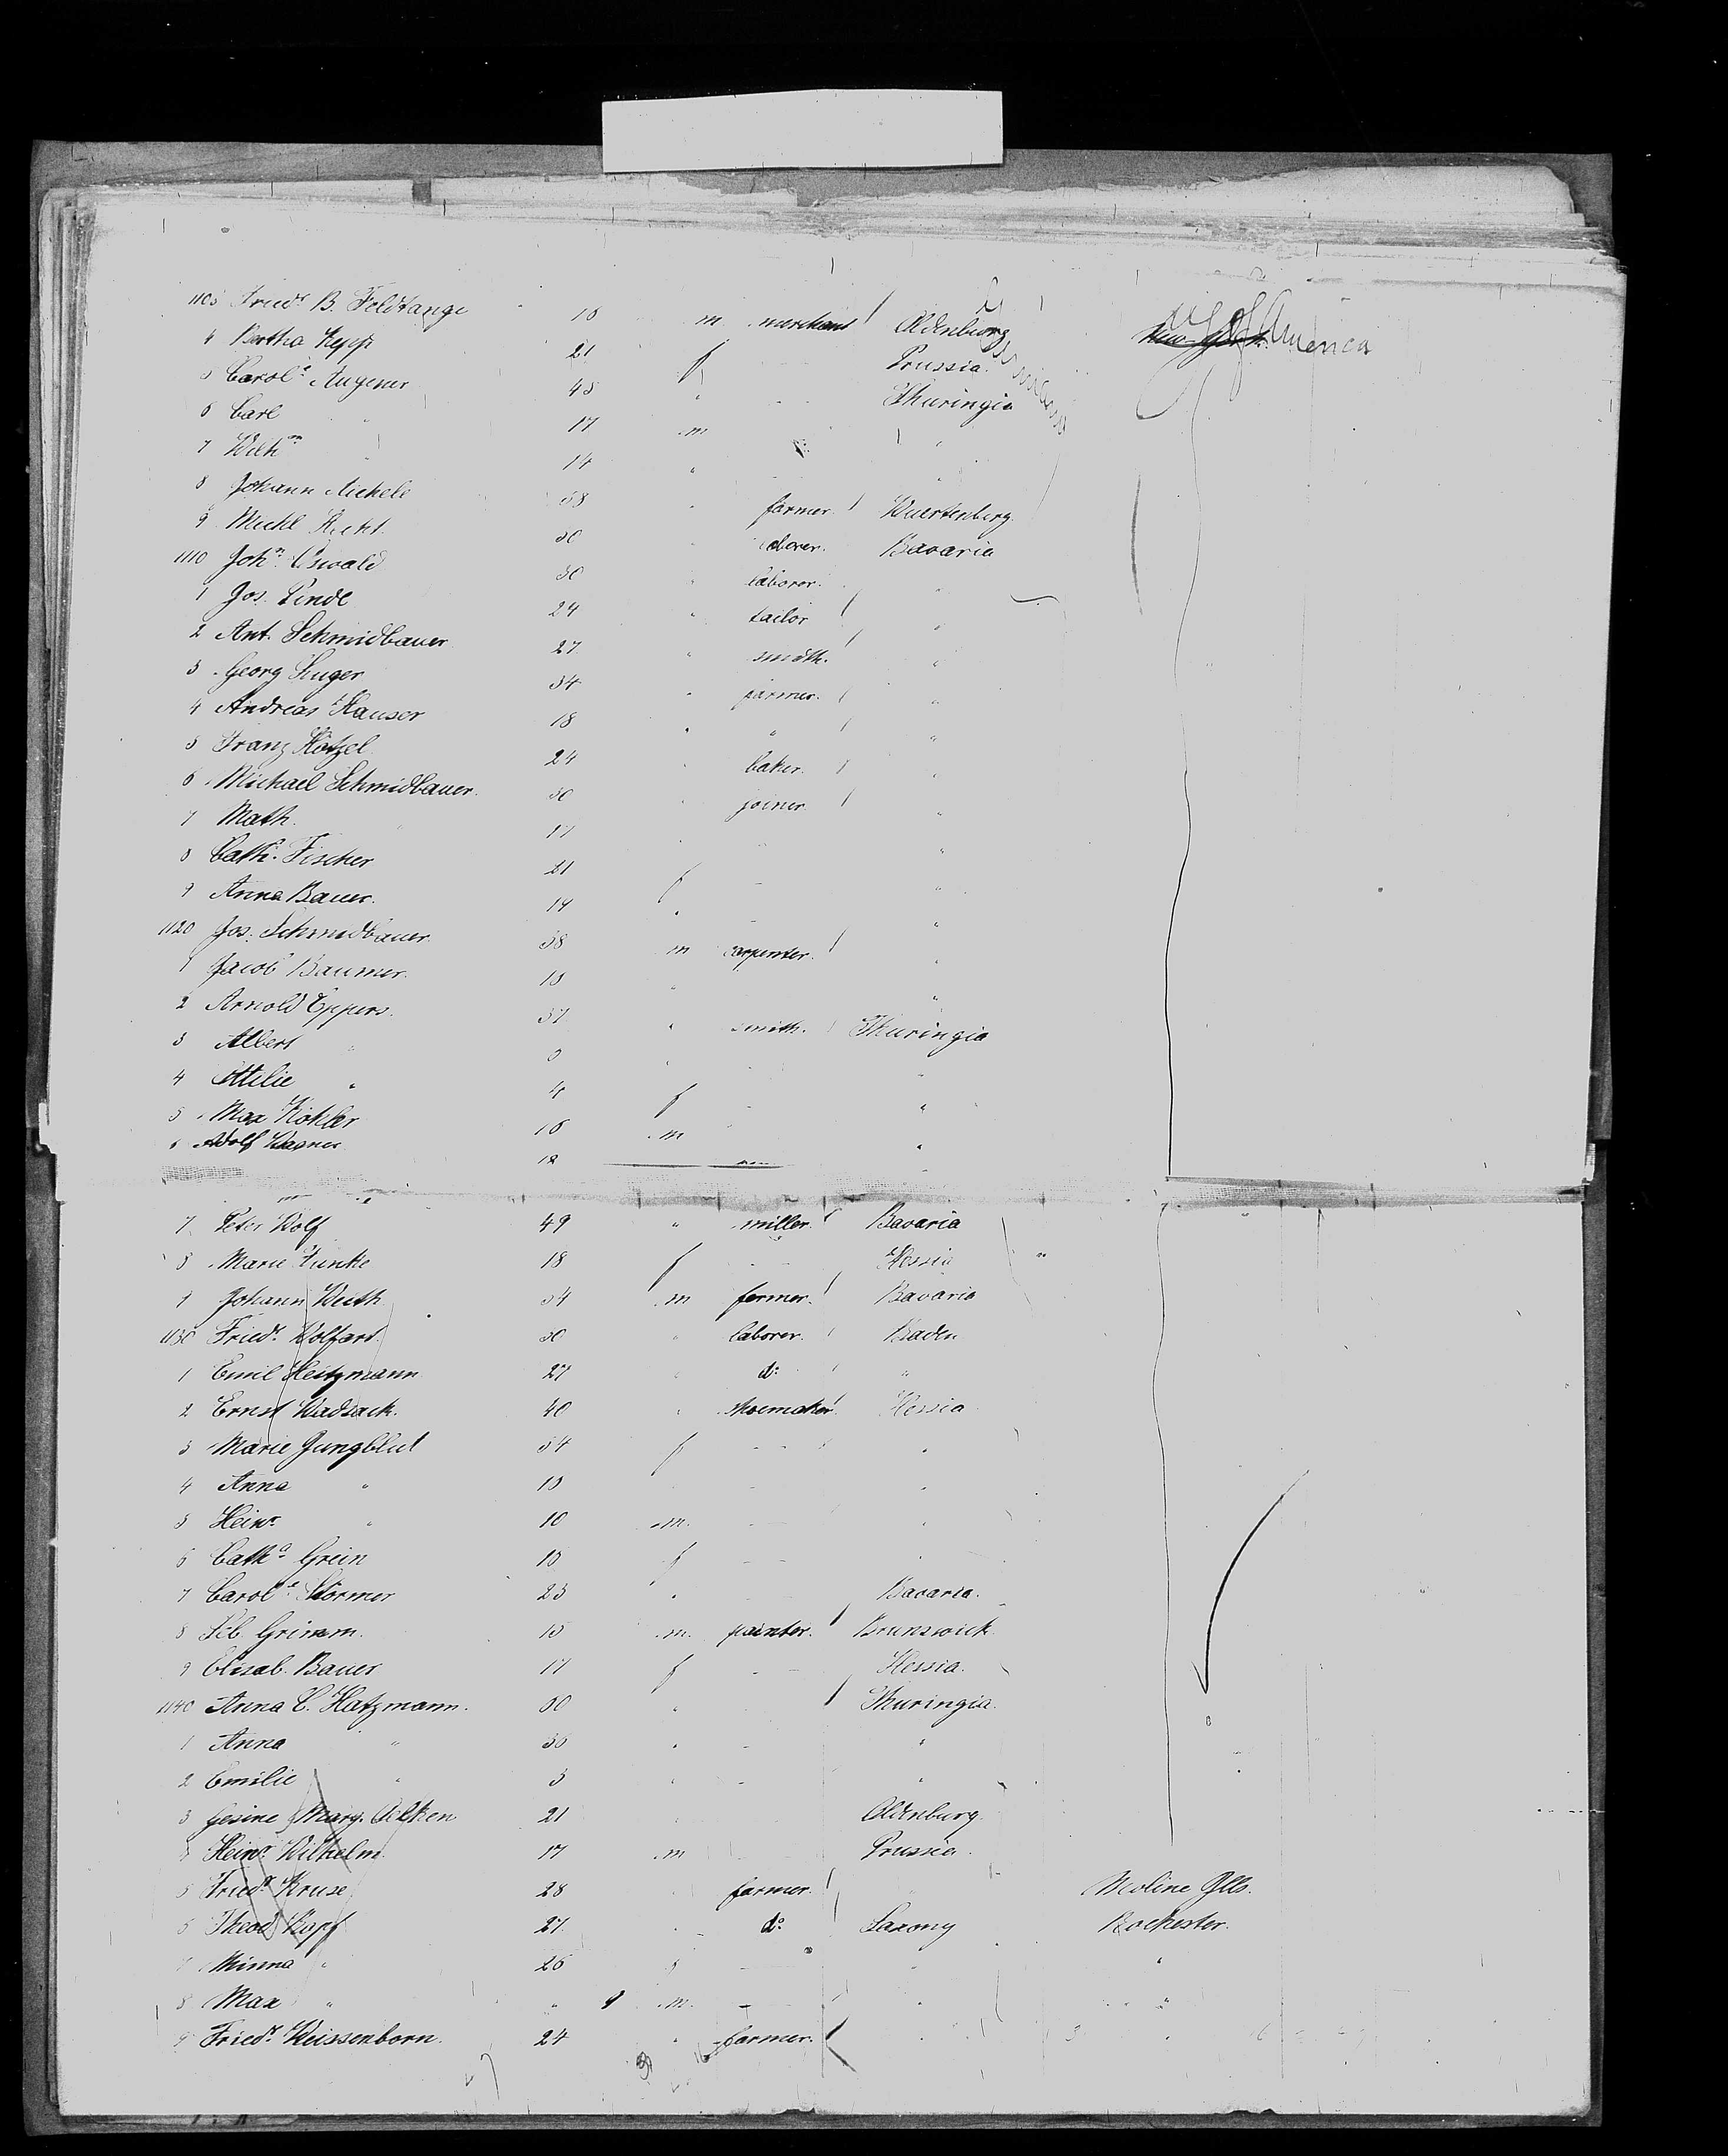 1103 Friedr. B. Feldtange 18 m merchant Oldenburg New York U S of America
4 Bertha Kepp 21 f - Prussia
5 Carole. Augener 45 " - Thuringia
6 Carl " 17 m
7 Wilhm " 14 " "
8 Johann Aichele 58 " farmer Wuertenberg
9 Michl 30 laborer Bavaria
1110 John. Oswald 30 " laborer "
1 Jos. Pindl 24 " tailor "
2 Ant. Schmidbauer 27 " smith "
3 Georg 34 " farmer "
4 Andreas Hauser 18 " " "
5 Franz Kötzel 24 " baker "
6 Michael Schmidbauer 30 " joiner "
7 Math. " 17 " "
8 Cath. Fischer 21 f - "
9 Anna Bauer 19 " - "
1120 Jos. Schmidbauer 38 m carpenter "
1 Jacob Baumer 18 " "
2 Arnold Eppers 37 " smith Thuringia
3 Albert " "
4 Ottilie " 4 f - "
5 Max Köhler 16 m "
6 Adolf Wagner 12 "
7 Peter Wolf 49 " miller Bavaria
8 Marie Funke 18 f - Hessia
9 Johann Weith 34 m farmer Bavaria
1130 Friedr. Wolfart 30 " laborer Baden
1 Emil Heitzmann 27 " do "
2 Ernst Wadsack 40 " shoemaker Hessia
3 Marie Jungblut 54 f - "
4 Anna " - "
5 Heinr. " 10 m - "
6 Catha. Grein f - "
7 Carole. Störmer 23 " Bavaria
8 Seb Grimm 15 m painter Brunswick
9 Elisab. Bauer 17 f - Hessia
1140 Anna C. Hatzmann 60 " Thuringia
1 Anna " 36 " - "
2 Emilie " 3 " - "
3 Gesine Marg. Oeltken 21 Oldenburg
4 Heinr. Wilhelm 17 m Prussia
5 Friedr. Kruse 28 farmer " Moline Ills.
6 Theod. Kopf 27 " do Saxony Rochester
7 Minna " 26 f - " "
8 Max " " 9 m - " "
9 Friedr. Weissenborn 24 " farmer " "